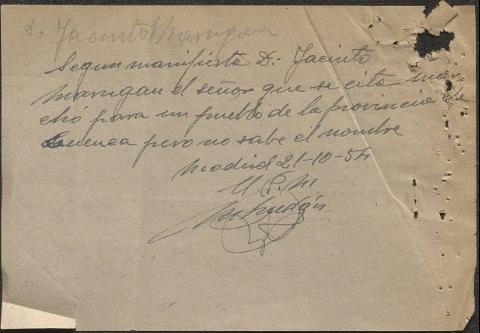 D. Jacinto Marugan
Segun manifiesta D. Jacinto
Marugan el señor que se cita mar
chó para un pueblo de la provincia de
Cuenca pero no sabe el nombre
Madrid 21-10-54